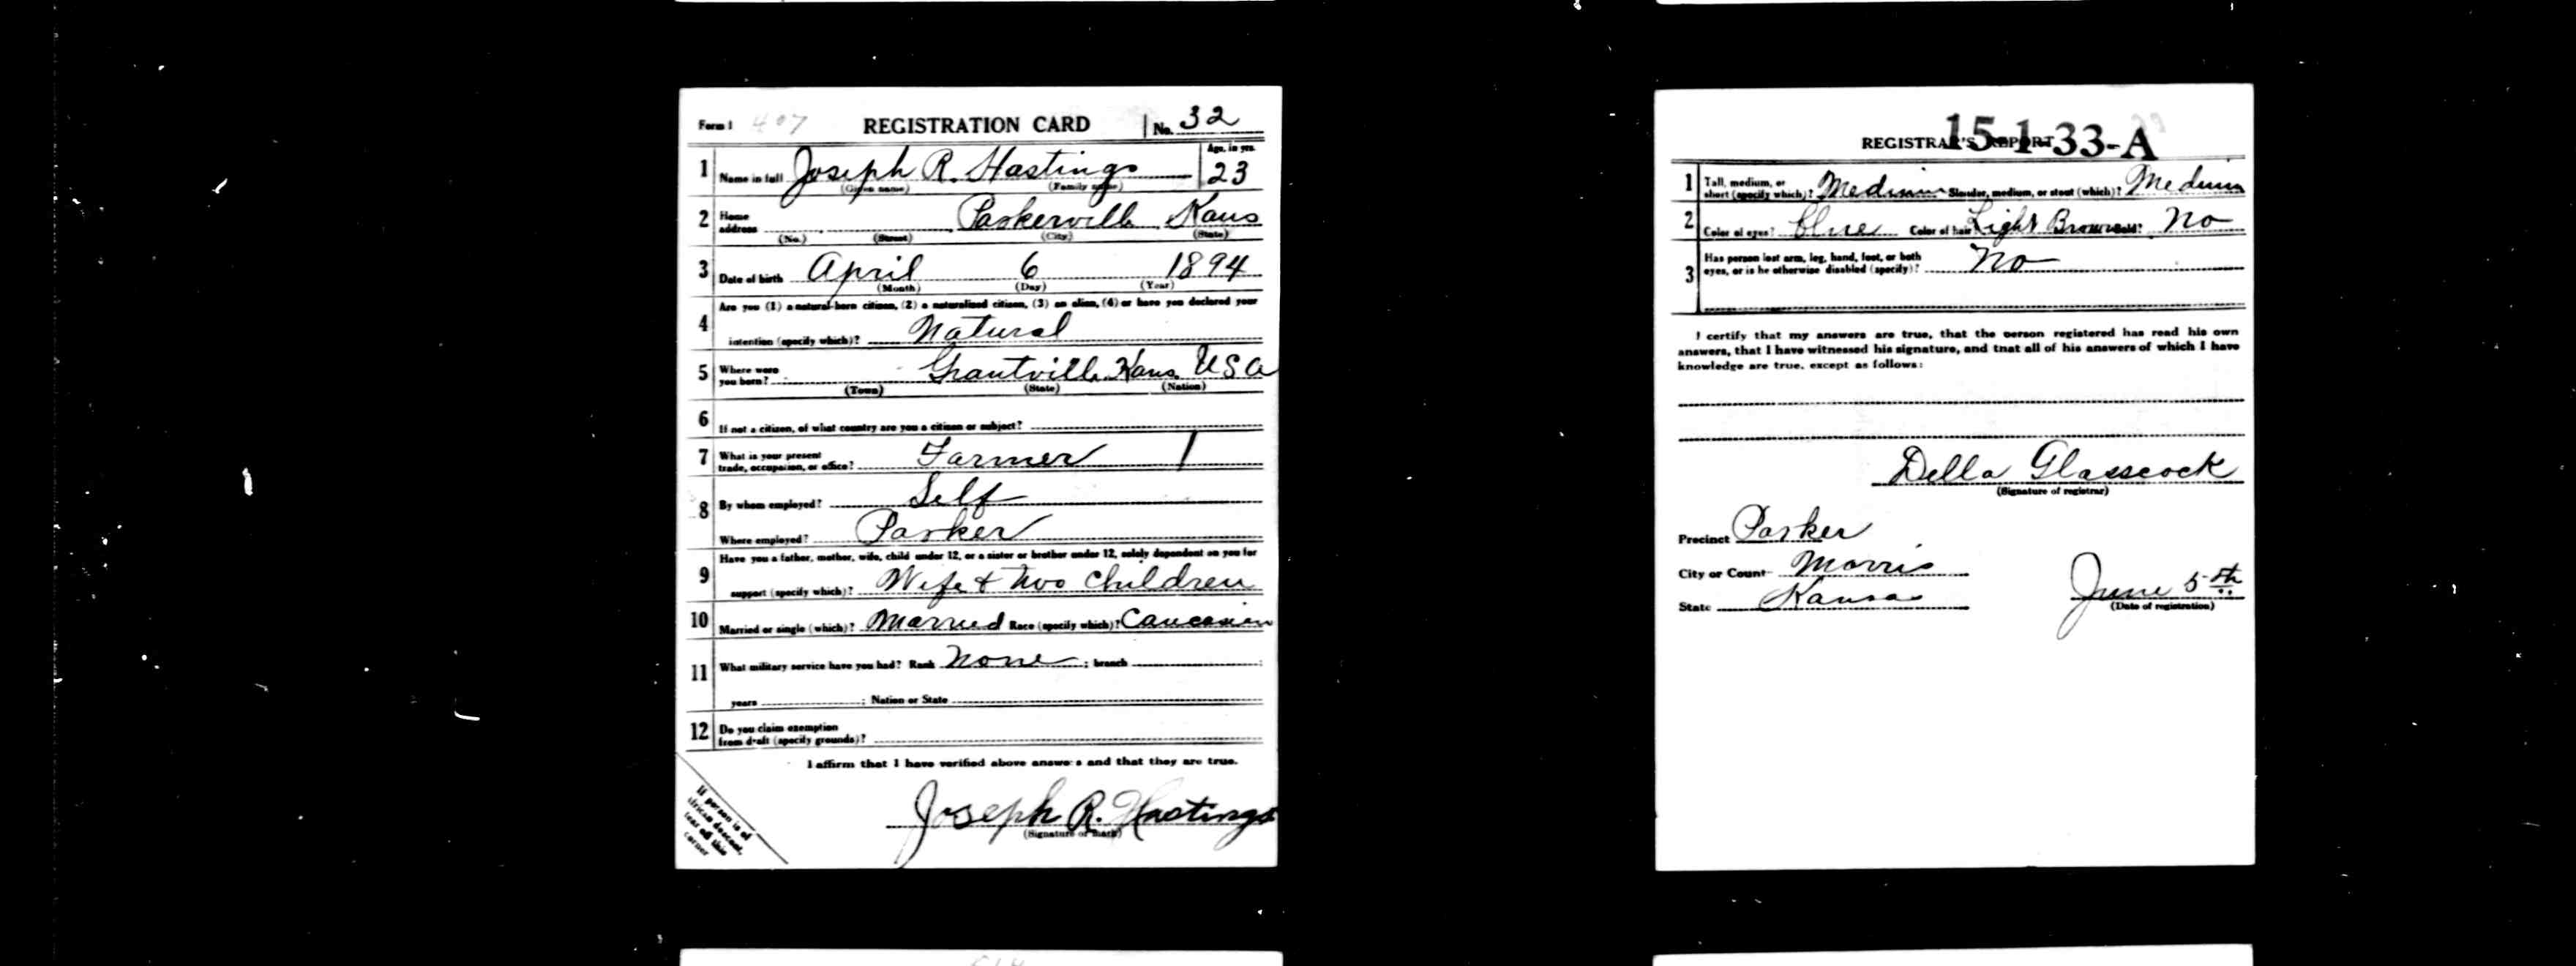 Form 1 407 REGISTRATION CARD No. 32
1 Name in full Joseph R. Hastings Age, in yrs. 23
(Given name) (Family name)
2 Home address Parkerville Kans
(No.) (Street) (City) (State)
3 Date of birth April 6 1894
(Month) (Day) (Year)
4 Are you (1) a natural-born citizen, (2) a naturalized citizen, (3) an alien, (4) or have you declared your
intention (specify which)? Natural
5 Where were you born? Grantville Kans USA
(Town) (State) (Nation)
6 If not a citizen, of what country are you a citizen or subject?
7 What is your present trade, occupation, or office? Farmer
8 By whom employed? Self
Where employed? Parker
9 Have you a father, mother, wife, child under 12, or a sister or brother under 12, solely dependent on you for
support (specify which)? Wife & two children
10 Married or single (which)? Married Race (specify which)? Caucasian
11 What military service have you had? Rank none ; branch ;
years ; Nation or State
12 Do you claim exemption from draft (specify grounds)?
I affirm that I have verified above answers and that they are true.
Joseph R. Hastings
(Signature or mark)
If person is of
African descent,
tear off this
corner
15-1-33-A
REGISTRAR'S REPORT
1 Tall, medium, or short (specify which)? Medium Slender, medium, or stout (which)? Medium
2 Color of eyes? blue Color of hair? Light Brown Bald? No
3 Has person lost arm, leg, hand, foot, or both eyes, or is he otherwise disabled (specify)? No
I certify that my answers are true, that the person registered has read his own
answers, that I have witnessed his signature, and that all of his answers of which I have
knowledge are true, except as follows:
Della Glasscock
(Signature of registrar)
Precinct Parker
City or County Morris
State Kansas
June 5th
(Date of registration)